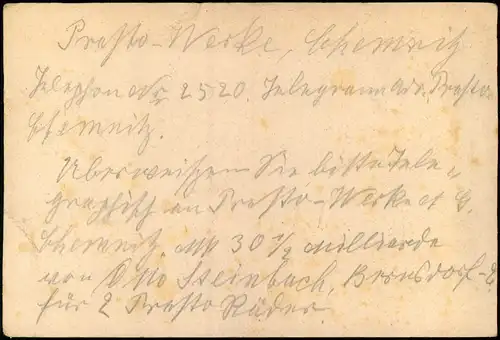 Presto-Werke, Chemnitz
Telephon Nr 2520. Telegramm Adr. Presto
Chemnitz.
Überweisen Sie bitte tele-
graphisch an Presto-Werke A G.
Chemnitz Mk 30 1/2 Milliarde
von Otto Steinbach, Bernsdorf-E
für 2 Presto Räder.